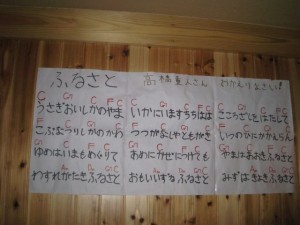 ふるさと
高橋重人さん
おかえりなさい!!
C G7 C F C
うさぎおいしかのやま
F C G7 C
こぶなつりしかのかわ
G7 C F G7
ゆめはいまもめぐりて
C G7 C
わすれがたきふるさと
いかにいますちちはは
つつがなしやともがき
あめにかぜにつけても
おもいいずるふるさと
こころざしをはたして
いつのひにかかえらん
やまはあおきふるさと
みずはきよきふるさと